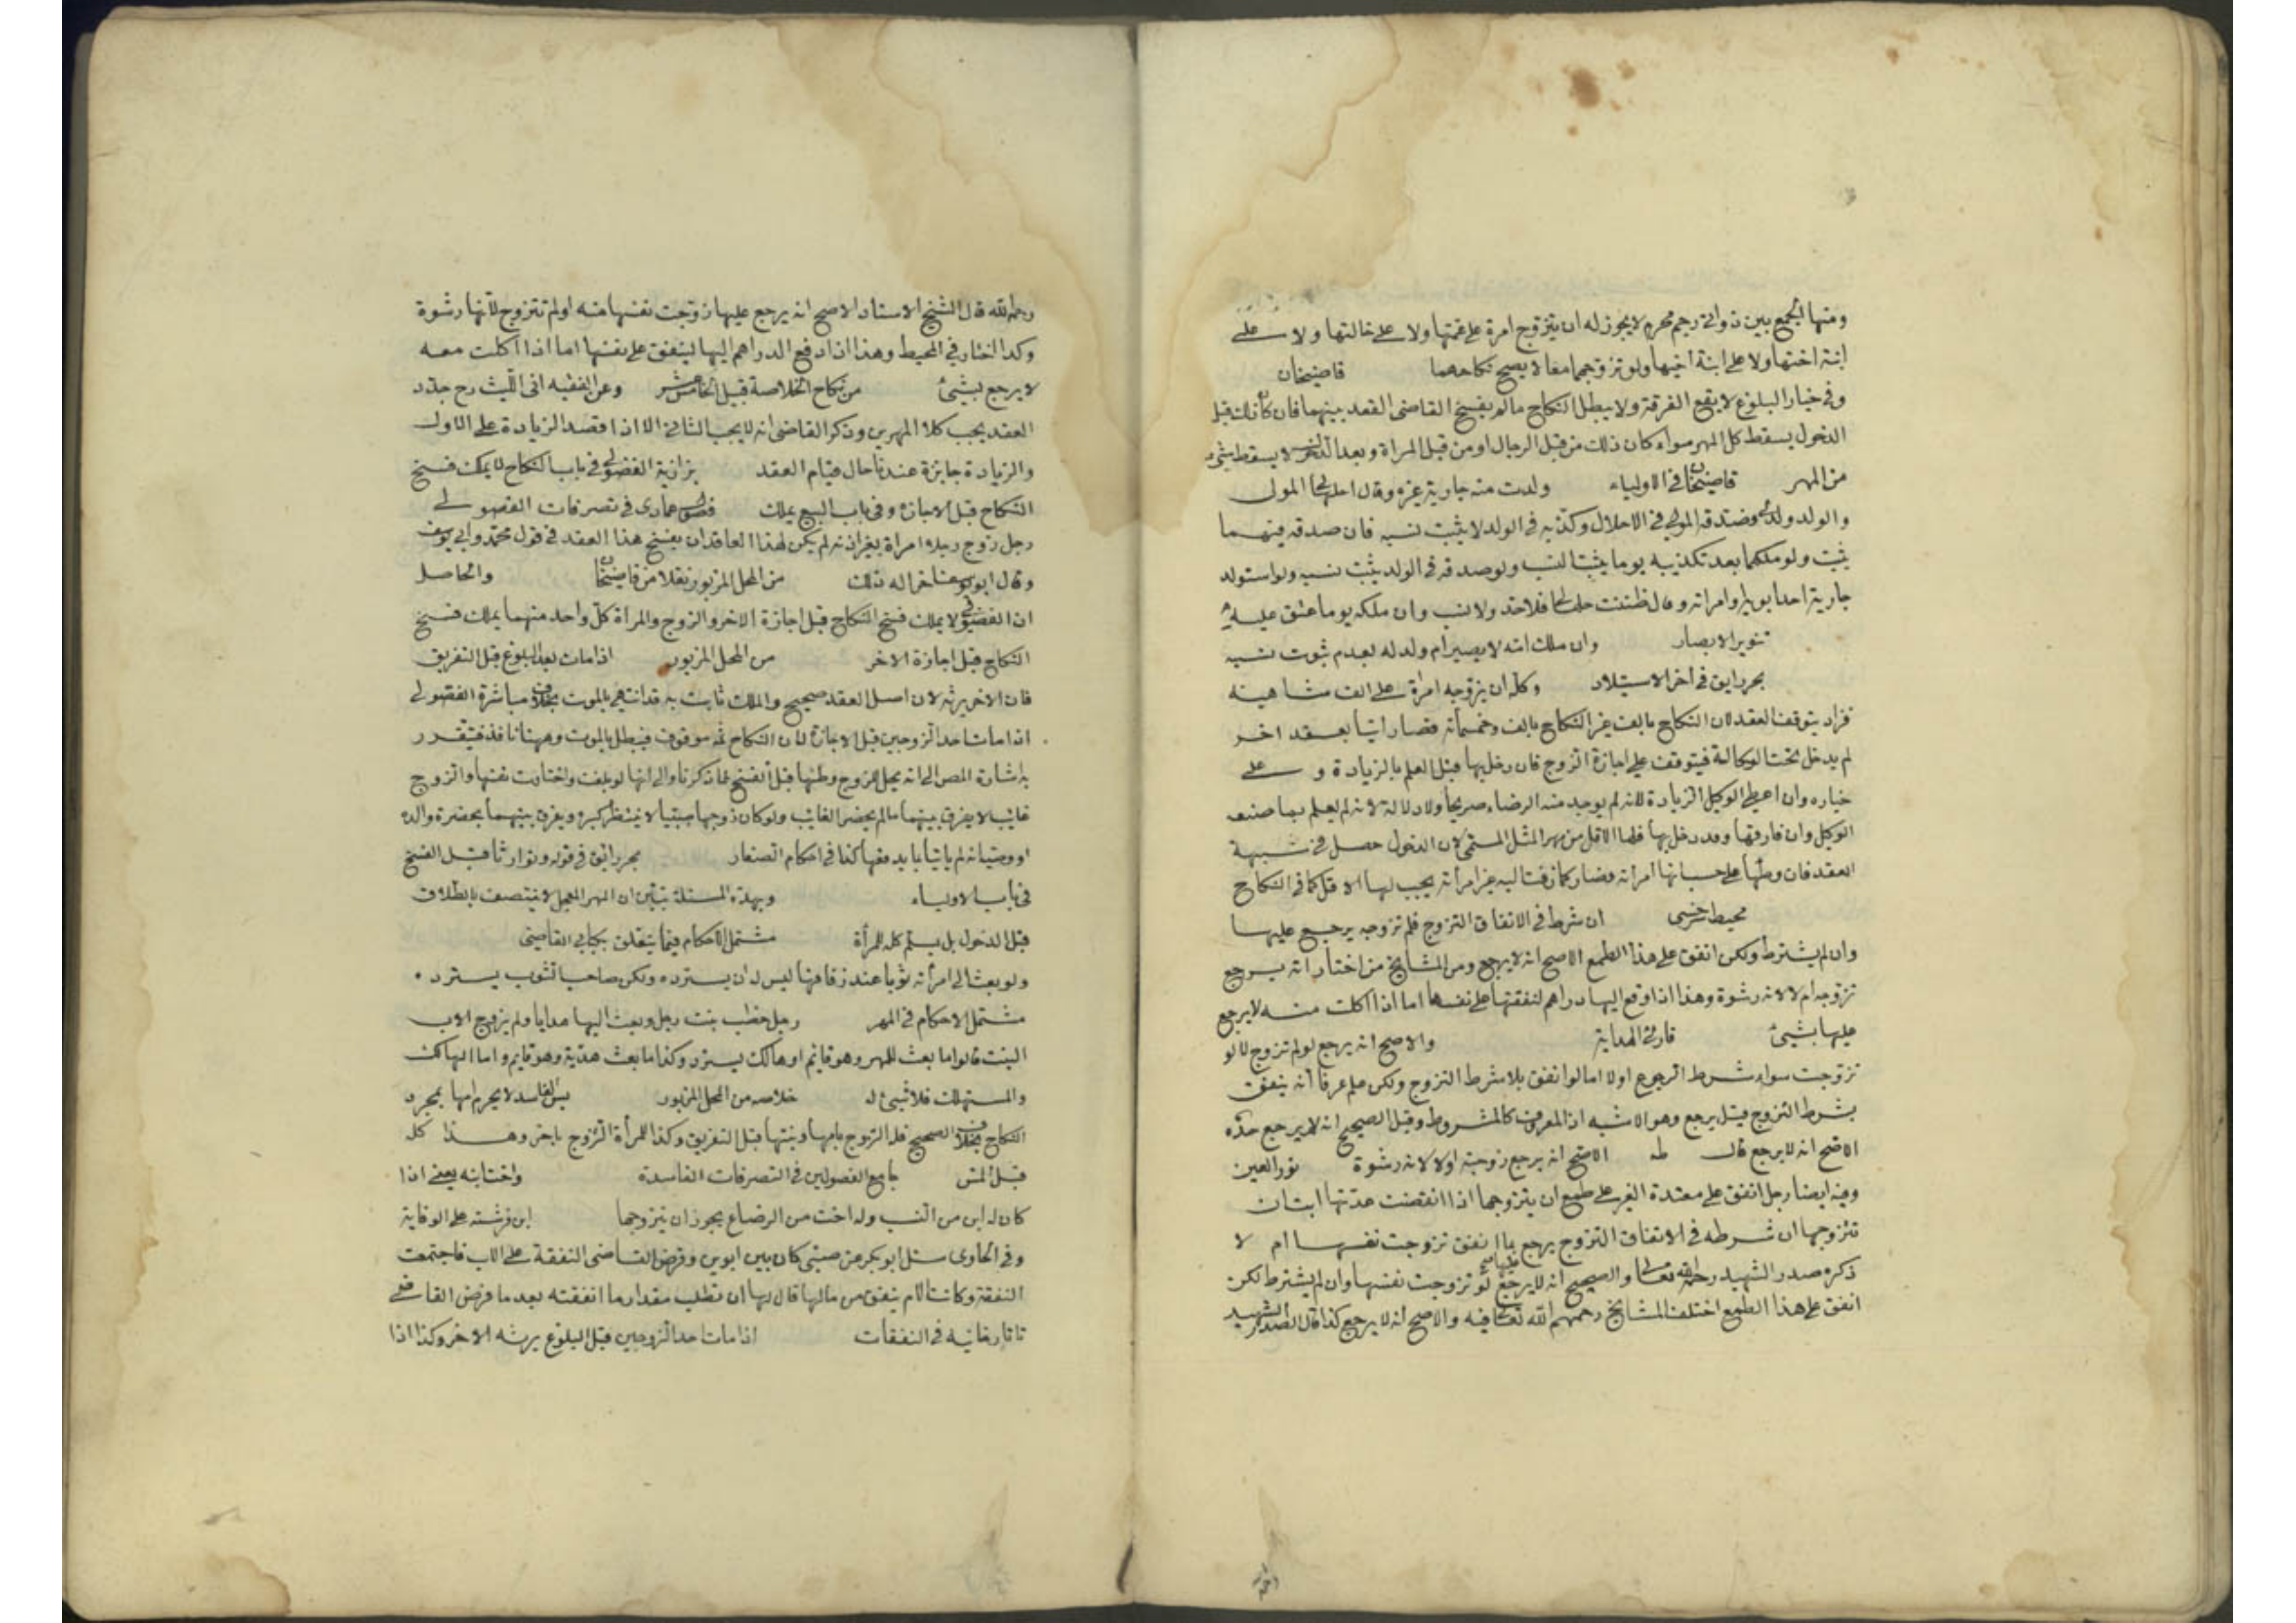 ومنها الجمع بين ذواتي رحم محرم لا يجوز له ان يتزوج امرة على عمتها ولا على خالتها ولا على
ابنة اختها ولا على ابنة اخيها ولو تزوجهما معا لا يصح نكاحهما قاضيخان
وفي خيار البلوغ لا يقع الفرقة ولا يبطل النكاح مالم يفسخ القاضي العقد بينهما فان كان ذلك قبل
الدخول يسقط كل المهر سواء كان ذلك من قبل الرجال او من قبل المراة وبعد الدخول لا يسقط شيء
من المهر قاضيخان في الاولياء ولدت منه جارية غيره وقال احلها لي المولى
والولد ولدي وصدقه المولى في الاحلال وكذبه في الولد لا يثبت نسبه فان صدقه فيهما
يثبت ولو ملكها بعد تكذيبه يوما يثبت النسب ولو صدقه في الولد يثبت نسبه ولو استولد
جارية احد ابويه او امراته وقال ظننت حلها لي فلا حد ولا نسب وان ملكه يوما عتق عليه
تنوير الابصار وان ملك امه لا يصير ام ولد له لعدم ثبوت نسبه
بحررايق في اخر الاستيلاد وكله ان يزوجه امراة على الف مثا هينه
فزاد يتوقف العقد لان النكاح بالف غير النكاح بالف وخمسمأته فصار اتيا بعقد اخر
لم يدخل تحت الوكالة فيتوقف على اجازة الزوج فان دخل بها قبل العلم بالزيادة و على
خياره وان اعطى الوكيل الزيادة لانه لم يوجد منه الرضاء صريحا ولا دلالة لانه لم يعلم بما صنع
الوكيل وان فارقها وقد دخل بها فلها الاقل من مهر المثل المسمى لان الدخول حصل في شبهة
العقد فان وطئها على حسبانها امرأته فصار كما زفت اليه غير امرأته يجب لها الاقل كما في النكاح
محيط سرخسي ان شرط في الانفاق التزوج فلم تزوجه يرجع عليها
وان لم يشترط ولكن انفق على هذا الطمع الاصح انه لا يرجع ومن المشايخ من اختار انه يرجع
تزوجه ام لا لانه رشوة وهذا اذا دفع اليها دراهم لنفقتها على نفسها اما اذا اكلت منه لا يرجع
عليها بشيئ قارئ الهداية والاصح انه يرجع لو لم تزوج لا لو
تزوجت سواء شرط الرجوع اولا اما لو انفق بلا شرط التزوج ولكن علم عرفا أنه ينفق
بشرط التزوج قيل يرجع وهو الاشبه اذ المعروف كالمشروط وقيل الصحيح انه لا يرجع
الاصح انه لا يرجع قال الاصح انه يرجع زوجته اولا لانه رشوة نور العين
وفيه ايضا رجل انفق على معتدة الغير على طمع ان يتزوجها اذا انقضت عدتها ابت ان
تتزوجها ان شرطه في الانفاق التزوج يرجع بما انفق تزوجت نفسها ام لا
ذكره صدر الشهيد رحمه الله تعالى والصحيح انه لا يرجع لو تزوجت نفسها وان لم يشترط لكن
انفق على هذا الطمع اختلف المشايخ رحمهم الله تعالى فيه والاصح انه لا يرجع كذا قال الصدر الشهيد
رحمه الله قال الشيخ الاستاذ الاصح انه يرجع عليها زوجت نفسها منه او لم تتزوج لانها رشوة
وكذا اختار في المحيط وهذا اذا دفع الدراهم اليها لينفق على نفسها اما اذا اكلت معه
لا يرجع بشيئ من نكاح الخلاصة قبيل الخامس عشر وعن الفقيه ابي الليث رح جدد
العقد يجب كلا المهرين وذكر القاضي انه لا يجب الثاني الا اذا قصد الزيادة على الاول
والزيادة جايزة عندنا حال قيام العقد بزازية الفضولي في باب النكاح لا يملك فسخ
النكاح قبل الاجازة وفي باب البيع يملك فصول عمادى في تصرفات الفضولي
رجل زوج رجلا امراة بغير اذنه لم يكن لهذا العاقد ان يفسخ هذا العقد في قول محمد وابي يوسف
وقال ابو يوسف اخرا له ذلك من المحل المزبور نقلا من قاضيخان والحاصل
ان الفضولي لا يملك فسخ النكاح قبل اجازة الاخر والزوج والمراة كل واحد منهما يملك فسخ
النكاح قبل اجازة الاخر من المحل المزبور اذا مات بعد البلوغ قبل التفريق
فان الاخر يرثه لان اصل العقد صحيح والملك ثابت به قد انتهى بالموت بخلاف مباشرة الفضولي
اذا مات احد الزوجين قبل الاجازة لان النكاح ثمه موقوف فيبطل بالموت وههنا نافذ فيتقرر
به اشارة المص الى انه يحل للزوج وطئها قبل الفسخ لما ذكرنا والى انها لو بلغت واختارت نفسها والزوج
غائب لا يفرق بينهما مالم يحضر الغائب ولو كان زوجها صبيا لا ينتظر كبره ويفرق بينهما بحضرة والده
او وصيا ان لم يأتيا بما يدفعها كذا في احكام الصغار بحررائق في قوله وتوارثا قبل الفسخ
في باب الاولياء وبهذه المسئلة تبين ان المهر المعجل لا يتنصف بالطلاق
قبل الدخول بل يسلم كله للمرأة مشتمل الاحكام فيما يتعلق بكتابي القاضي
ولو بعث الى امرأته ثوبا عند زفافها ليس له ان يسترده ولكن صاحب الثوب يسترد.
مشتمل الاحكام في المهر رجل خطب بنت رجل وبعث اليها هدايا ولم يزوج الاب
البنت قالوا ما بعث للمهر وهو قائم او هالك يسترد وكذا ما بعث هدية وهو قايم واما الهالك
والمستهلك فلا شيئ له خلاصه من المحل المزبور بس الفاسد لا يحرم امها بمجرد
النكاح بخلاف الصحيح فله التزوج بامها وبنتها قبل التفريق وكذا للمرأة التزوج باخر وهذا كله
قبل المس جامع الفصولين في التصرفات الفاسدة واخت ابنه يعني اذا
كان له ابن من النسب وله اخت من الرضاع يجوز ان يتزوجها ابن فرشته على الوقاية
وفي الحاوى سئل ابو بكر عن صبي كان بين ابوين وفرض القاضى النفقة على الاب فاجتمعت
النفقة وكانت الام ينفق من مالها قال لها ان تطلب مقدار ما انفقته بعد ما فرض القاضي
تاتارخانيه في النفقات اذا مات احد الزوجين قبل البلوغ يرثه الاخر وكذا اذا